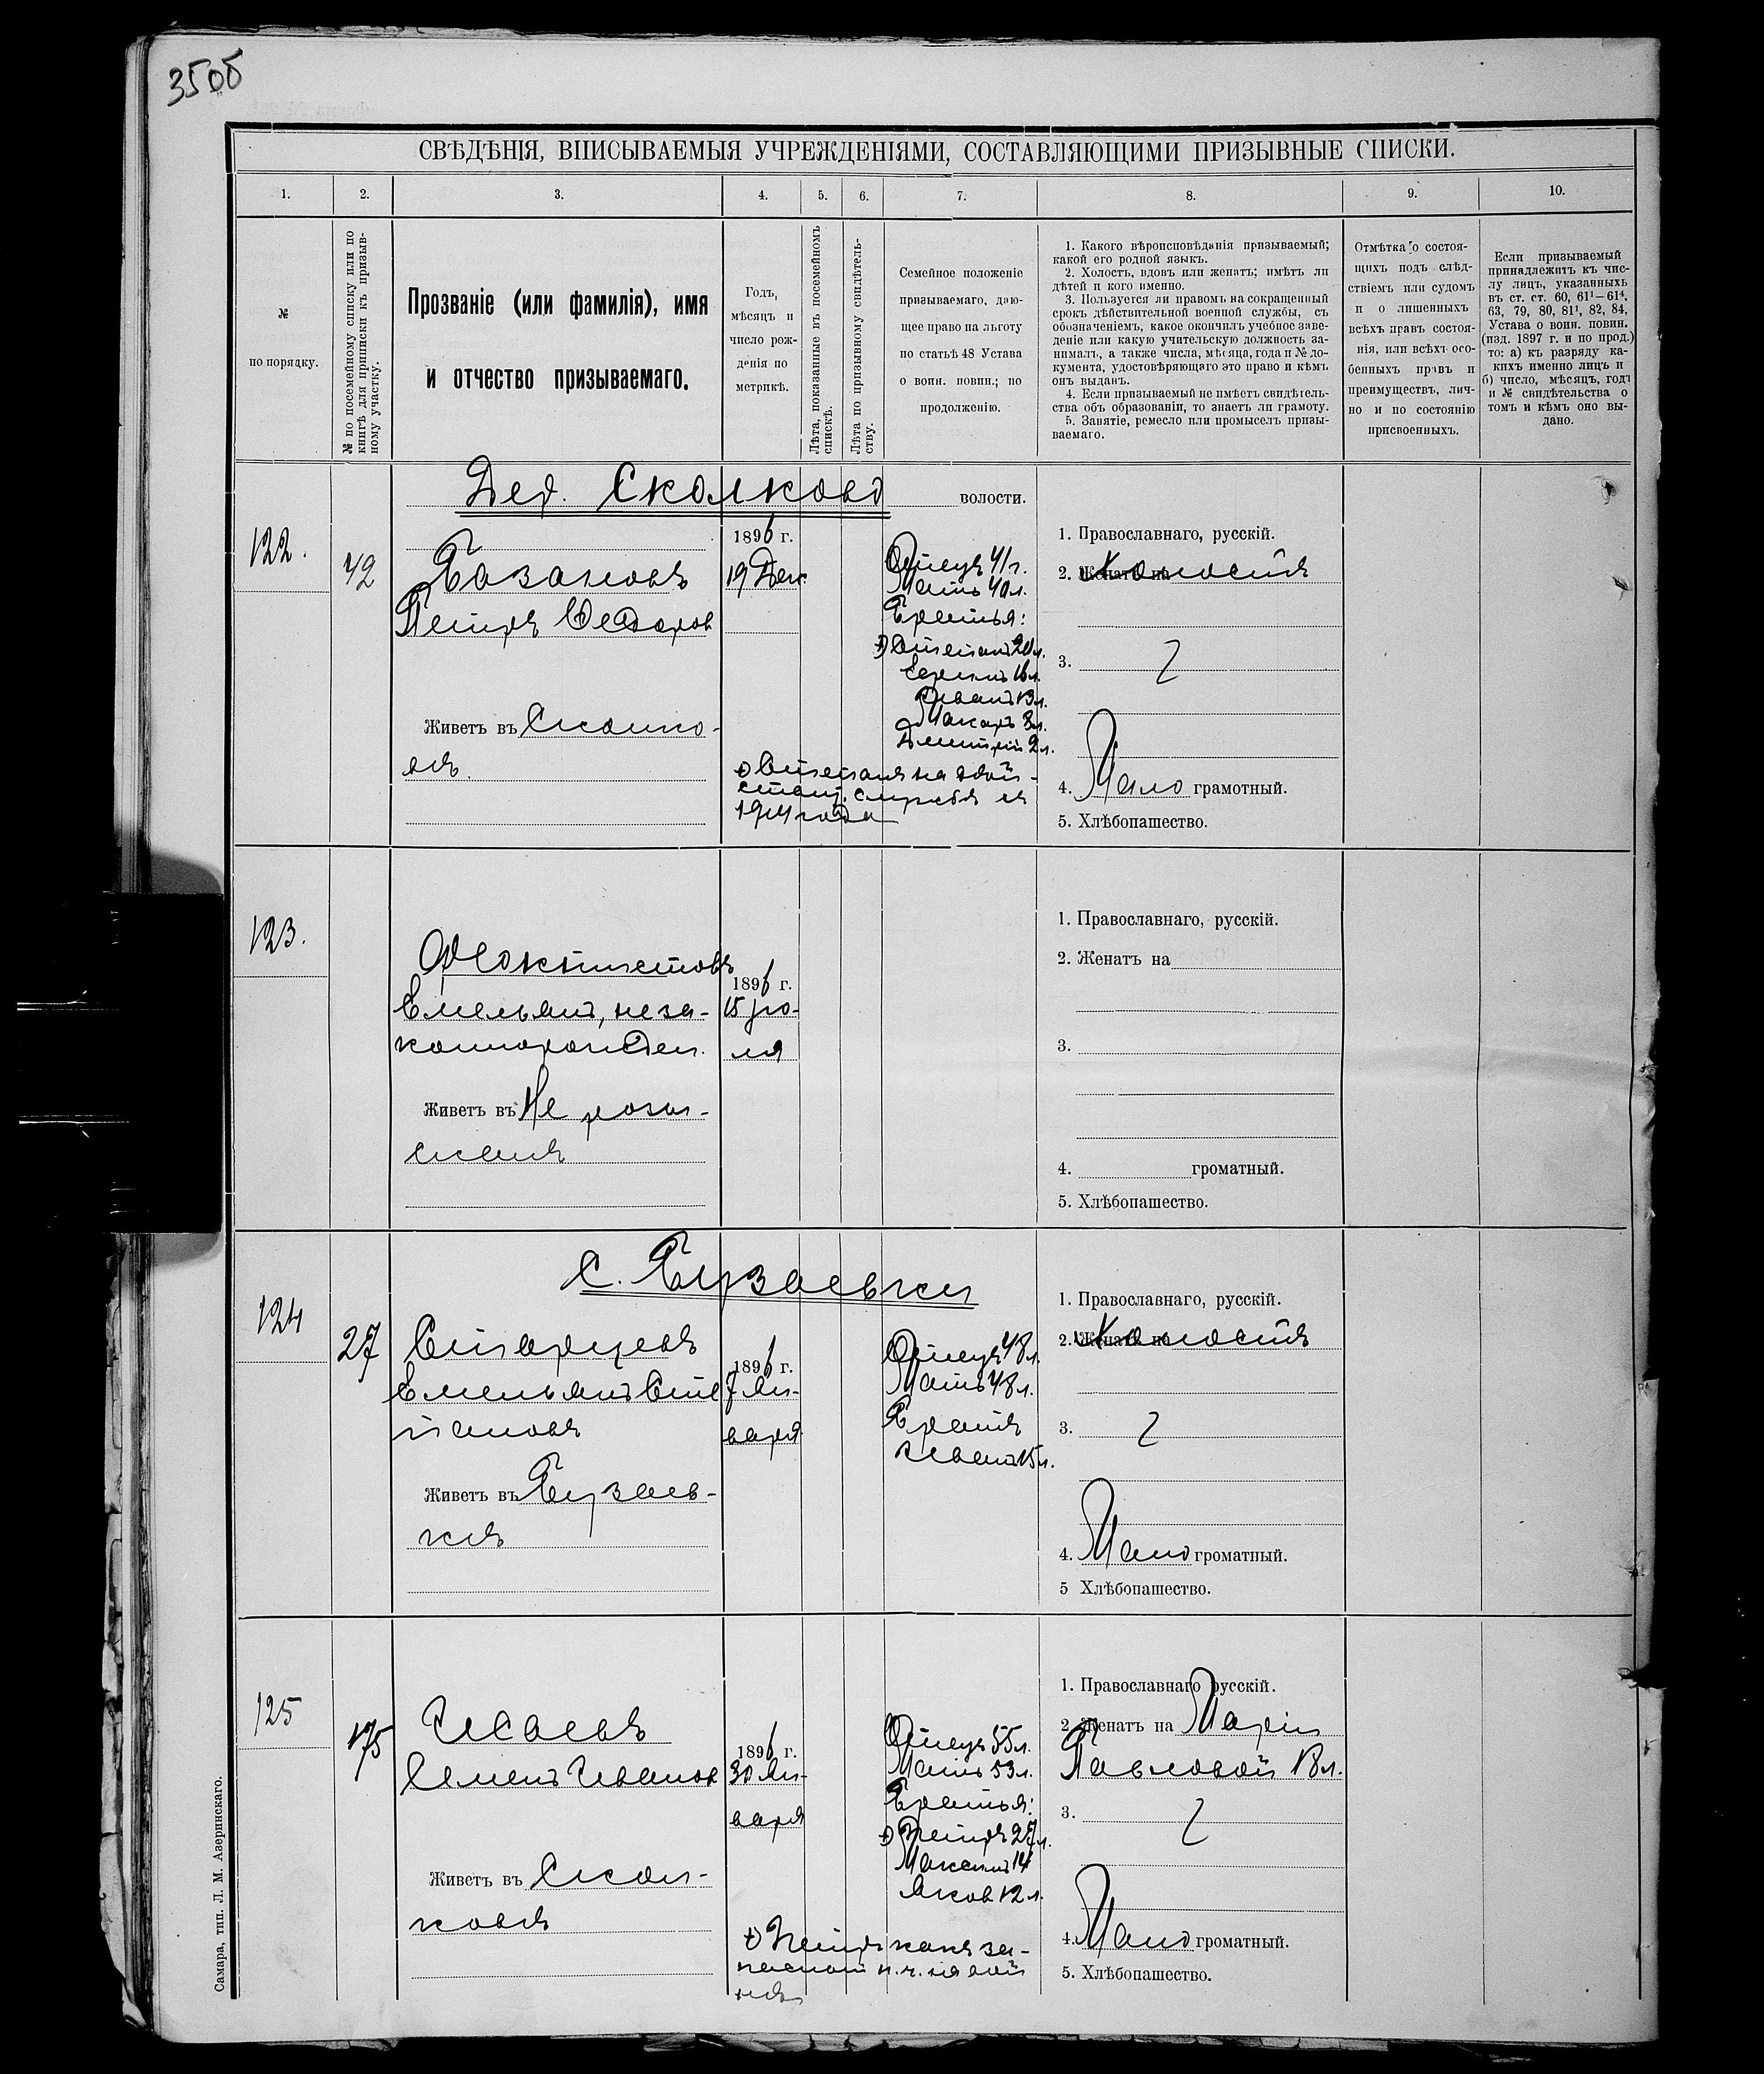 350б
СВѢДѢНІЯ, ВПИСЫВАЕМЫЯ УЧРЕЖДЕНІЯМИ, СОСТАВЛЯЮЩИМИ ПРИЗЫВНЫЕ СПИСКИ.
1. 2. 3. 4. 5. 6. 7. 8. 9. 10.
№
по порядку.
№ по посемейному списку или по
книгѣ для приписки къ призыв-
ному участку.
Прозваніе (или фамилія), имя
и отчество призываемаго.
Годъ,
мѣсяцъ и
число рож-
денія по
метрикѣ.
Лѣта, показанные въ посемейномъ
спискѣ.
Лѣта по призывному свидѣтель-
ству.
Семейное положеніе
призываемаго, даю-
щее право на льготу
по статьѣ 48 Устава
о воин. повин.; по
продолженію.
1. Какого вѣроисповѣданія призываемый;
какой его родной языкъ.
2. Холостъ, вдовъ или женатъ; имѣтъ ли
дѣтей и кого именно.
3. Пользуется ли правомъ на сокращенный
срокъ дѣйствительной военной службы, съ
обозначеніемъ, какое окончилъ учебное заве-
деніе или какую учительскую должность за-
нималъ, а также числа, мѣсяца, года и № до-
кумента, удостовѣряющаго это право и кѣмъ
онъ выданъ.
4. Если призываемый не имѣетъ свидѣтель-
ства объ образованіи, то знаетъ ли грамоту.
5. Занятіе, ремесло или промыселъ призы-
ваемаго.
Отмѣтка о состоя-
щихъ подъ слѣд-
ствіемъ или судомъ
и о лишенныхъ
всѣхъ правъ состоя-
нія, или всѣхъ осо-
бенныхъ правъ и
преимуществъ, лич-
но и по состоянію
присвоенныхъ.
Если призываемый
принадлежитъ къ чис-
лу лицъ, указанныхъ
въ ст. ст. 60, 61¹—61⁴,
63, 79, 80, 81¹, 82, 84,
Устава о воин. повин.
(изд. 1897 г. и по прод.)
то: а) къ разряду ка-
кихъ именно лицъ и
б) число, мѣсяцъ, годъ
и № свидѣтельства о
томъ и кѣмъ оно вы-
дано.
Дер. Сколково волости.
122.
42
Базановъ
Петръ Ѳедоров
Живетъ въ Сколко-
вѣ.
1896 г.
19 Дек.
Отецъ 41 г.
Мать 40 л.
Братья:
1) Степанъ 20 л.
Сергѣй 16 л.
Иванъ 13 л.
Макаръ 3 л.
Дмитрій 2 л.
1) Степанъ на дѣй-
ствит. службѣ съ
1914 года
1. Православнаго, русскій.
2. Женатъ на Холостъ
3.
4. Мало грамотный.
5. Хлѣбопашество.
123.
Феоктистовъ
Емельянъ, неза-
коннорожден.
Живетъ въ Не розы-
сканъ
1896 г.
15 Iю-
ля
1. Православнаго, русскій.
2. Женатъ на
3.
4. громатный.
5. Хлѣбопашество.
С. Бузаевки
124
27
Старцевъ
Емельянъ Сте
пановъ
Живетъ въ Бузаев-
кѣ
1896 г.
7 Ян-
варя
Отецъ 48 л.
Мать 48 л.
Братъ
Иванъ 15 л.
1. Православнаго, русскій.
2. Женатъ на Холостъ
3.
4. Мало громатный.
5 Хлѣбопашество.
125
175
Исаевъ
Семенъ Иванов
Живетъ въ Скол-
ковѣ
1896 г.
30 Ян-
варя
Отецъ 55 л.
Мать 53 л.
Братья:
1) Петръ 27 л.
Максимъ 14
Яков 12 л.
1) Петръ какъ за-
пасной н.ч. на вой
нѣ
1. Православнаго русскій.
2. Женатъ на Маріи
Павловой 18 л.
3.
4. Мало громатный.
5. Хлѣбопашество.
Самара, тип. Л. М. Азеринскаго.